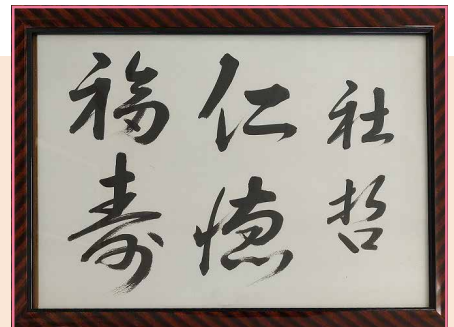 社哲
仁德
福寿